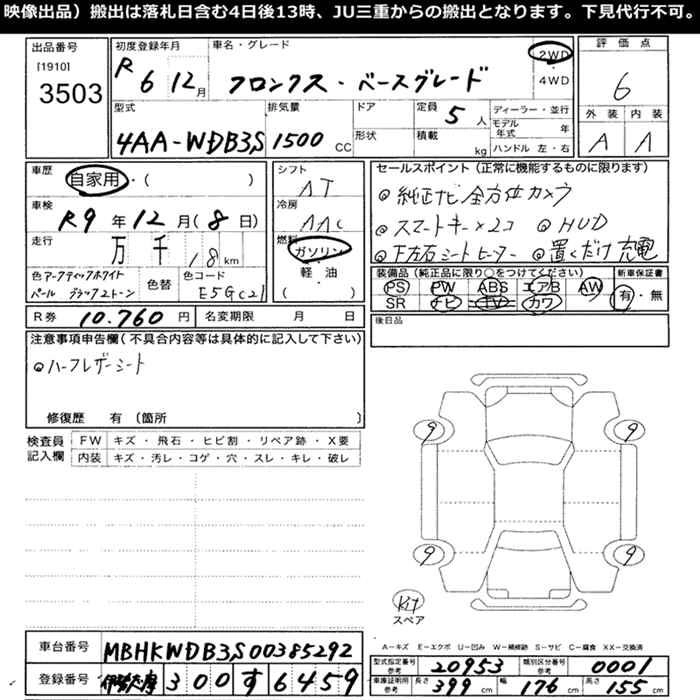 映像出品）搬出は落札日含む4日後13時、JU三重からの搬出となります。下見代行不可。
出品番号
[1910]
3503
初度登録年月
R 6 12月
車名・グレード
フロンクス・ベースグレード
2WD
4WD
評価点
6
型式
4AA-WDB3S
排気量
1500 CC
ドア
形状
定員 5 人
積載 kg
ディーラー・並行
モデル年式 年
ハンドル 左・右
外装 内装
A A
車歴
自家用・（ ）
車検
R9年12月（8日）
走行
万 千 18 km
色 アークティックホワイト
パール ブラック2トーン
色替
色コード
E5G(2)
シフト
AT
冷房
AAC
燃料
ガソリン
軽・油
（ ）
セールスポイント（正常に機能するものに限ります）
◎純正ナビ 全方位カメラ
◎スマートキー×2コ ◎HUD
◎下左右シートヒーター ◎置くだけ充電
装備品（純正品に限り○をつけてください）
PS PW ABS エアB AW
SR ナビ TV カワ
新車保証書
有・無
後日品
R券 10.760 円
名変期限 月 日
注意事項申告欄（不具合内容等は具体的に記入して下さい）
◎ハーフレザーシート
修復歴 有（箇所 ）
検査員
記入欄
FW キズ・飛石・ヒビ割・リペア跡・X要
内装 キズ・汚レ・コゲ・穴・スレ・キレ・破レ
9 9
9 9
Kit
スペア
A－キズ E－エクボ U－凹み W－補修跡 S－サビ C－腐食 XX－交換済
車台番号
MBHKWDB3S00385292
登録番号
300 す 6459
型式指定番号
参考
20953
類別区分番号
参考
0001
車庫証明用
参考
長さ 399 cm
幅 176 cm
高さ 155 cm